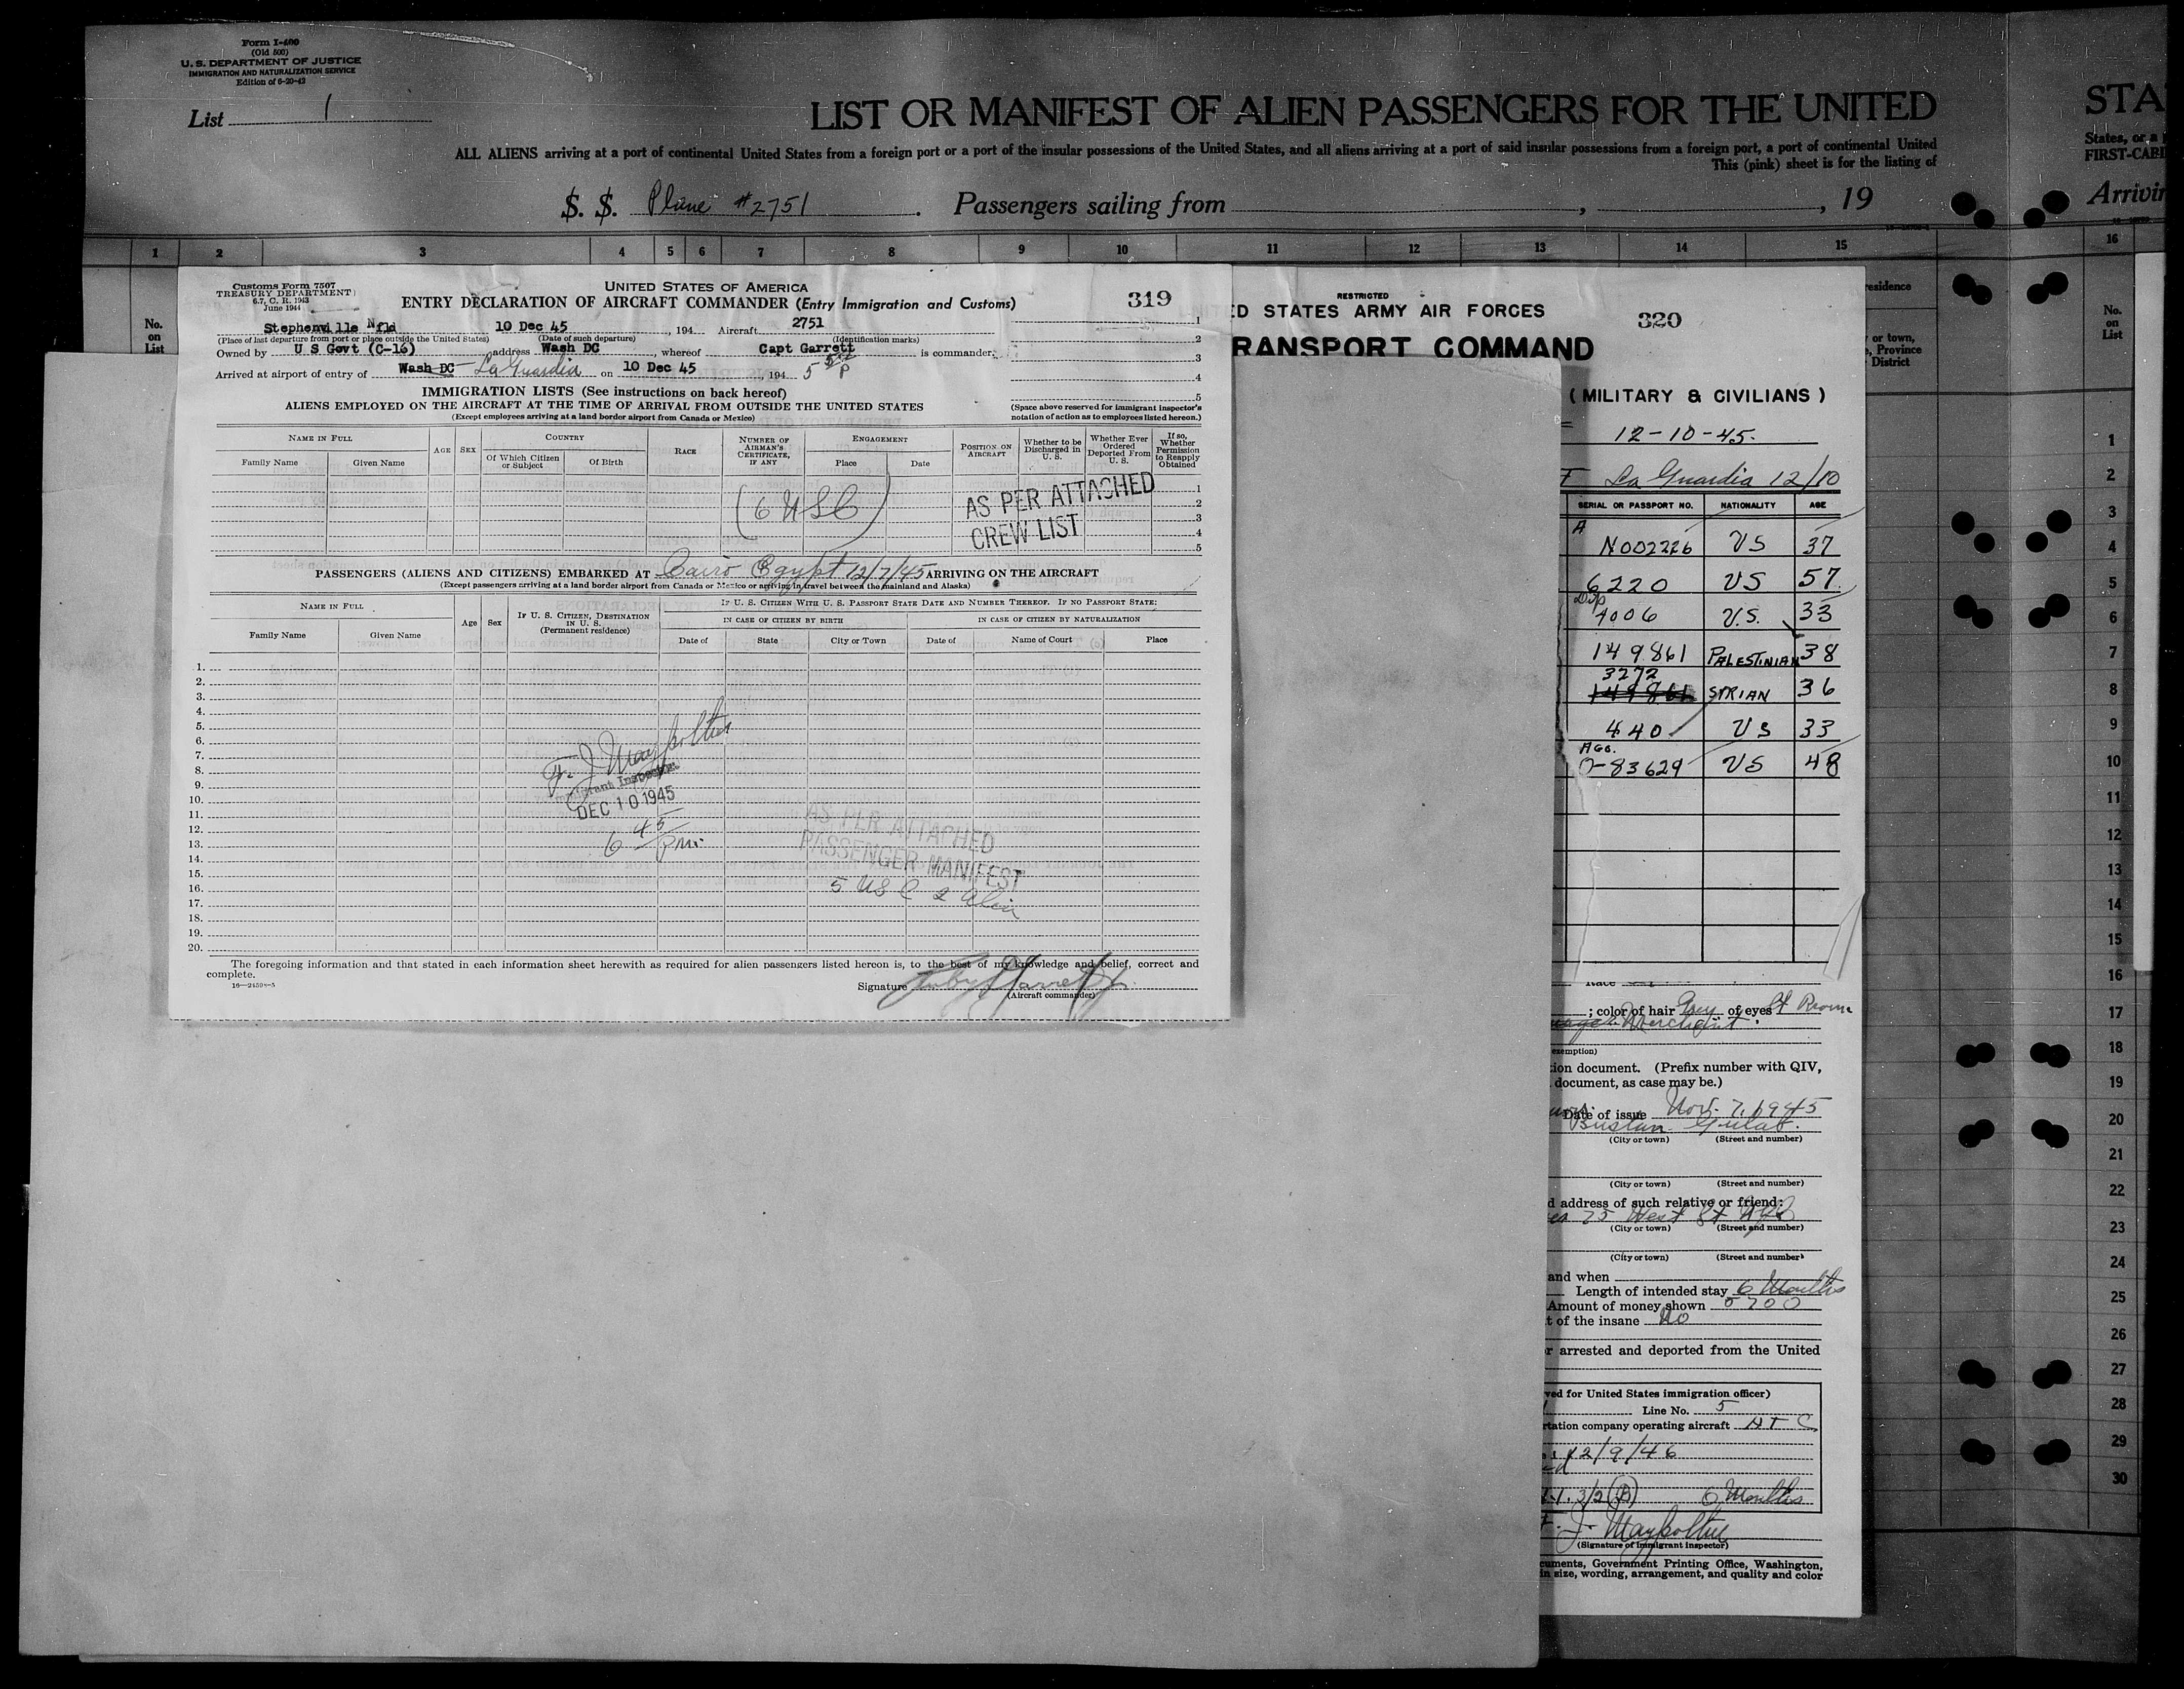 Form I-400
(Old 500)
U. S. DEPARTMENT OF JUSTICE
IMMIGRATION AND NATURALIZATION SERVICE
Edition of 6-20-42
List 1
LIST OR MANIFEST OF ALIEN PASSENGERS FOR THE UNITED
STA
ALL ALIENS arriving at a port of continental United States from a foreign port or a port of the insular possessions of the United States, and all aliens arriving at a port of said insular possessions from a foreign port, a port of continental United
States, or a
This (pink) sheet is for the listing of
FIRST-CABI
S. S. Plane #2751 . Passengers sailing from , , 19
Arrivin
1 2 3 4 5 6 7 8 9 10 11 12 13 14 15 16
No. on List
Customs Form 7507
TREASURY DEPARTMENT
6.7, C. R. 1943
June 1944
UNITED STATES OF AMERICA
ENTRY DECLARATION OF AIRCRAFT COMMANDER (Entry Immigration and Customs)
319
Stephenville Nfld 10 Dec 45 , 194 Aircraft 2751
(Place of last departure from port or place outside the United States) (Date of such departure) (Identification marks)
Owned by U S Govt (C-16) address Wash DC , whereof Capt Garrett is commander:
Arrived at airport of entry of Wash DC La Guardia on 10 Dec 45 , 194 5 P
1
2
3
4
5
IMMIGRATION LISTS (See instructions on back hereof)
ALIENS EMPLOYED ON THE AIRCRAFT AT THE TIME OF ARRIVAL FROM OUTSIDE THE UNITED STATES
(Except employees arriving at a land border airport from Canada or Mexico)
(Space above reserved for immigrant inspector's
notation of action as to employees listed hereon.)
NAME IN FULL
Family Name Given Name
AGE SEX
COUNTRY
Of Which Citizen or Subject
Of Birth
RACE
NUMBER OF AIRMAN'S CERTIFICATE, IF ANY
ENGAGEMENT
Place Date
POSITION ON AIRCRAFT
Whether to be Discharged in U. S.
Whether Ever Ordered Deported From U. S.
If so, Whether Permission to Reapply Obtained
(6 USC)
AS PER ATTACHED
CREW LIST
1
2
3
4
5
PASSENGERS (ALIENS AND CITIZENS) EMBARKED AT Cairo Egypt 12/7/45 ARRIVING ON THE AIRCRAFT
(Except passengers arriving at a land border airport from Canada or Mexico or arriving in travel between the mainland and Alaska)
NAME IN FULL
Family Name Given Name
Age Sex
IF U. S. CITIZEN, DESTINATION IN U. S. (Permanent residence)
IF U. S. CITIZEN WITH U. S. PASSPORT STATE DATE AND NUMBER THEREOF. IF NO PASSPORT STATE:
IN CASE OF CITIZEN BY BIRTH IN CASE OF CITIZEN BY NATURALIZATION
Date of State City or Town Date of Name of Court Place
1.
2.
3.
4.
5.
6.
7.
8.
9.
10.
11.
12.
13.
14.
15.
16.
17.
18.
19.
20.
Immigrant Inspector
DEC 10 1945
6 45 Pm
AS PER ATTACHED
PASSENGER MANIFEST
5 USC 2 Alien
The foregoing information and that stated in each information sheet herewith as required for alien passengers listed hereon is, to the best of my knowledge and belief, correct and
complete.
16—24598-5
Signature
(Aircraft commander)
RESTRICTED
ED STATES ARMY AIR FORCES
320
RANSPORT COMMAND
(MILITARY & CIVILIANS)
12-10-45.
La Guardia 12/10
SERIAL OR PASSPORT NO. NATIONALITY AGE
A N002226 US 37
6220 US 57
Dip 4006 U.S. 33
149861 PALESTINIAN 38
3272 149861 SYRIAN 36
440 US 33
AGO. O-83629 US 48
Race
; color of hair Grey of eyes Lt Brown
Merchant
exemption)
ion document. (Prefix number with QIV,
document, as case may be.)
Date of issue Nov. 7, 1945
(City or town) (Street and number)
(City or town) (Street and number)
d address of such relative or friend:
75 West St NYC
(City or town) (Street and number)
(City or town) (Street and number)
and when
Length of intended stay 6 Months
Amount of money shown
t of the insane No
r arrested and deported from the United
ved for United States immigration officer)
Line No. 5
rtation company operating aircraft ATC
12/9/46
3/2 (B) 6 Months
(Signature of immigrant inspector)
cuments, Government Printing Office, Washington,
in size, wording, arrangement, and quality and color
residence
or town,
, Province
District
No. on List
1
2
3
4
5
6
7
8
9
10
11
12
13
14
15
16
17
18
19
20
21
22
23
24
25
26
27
28
29
30